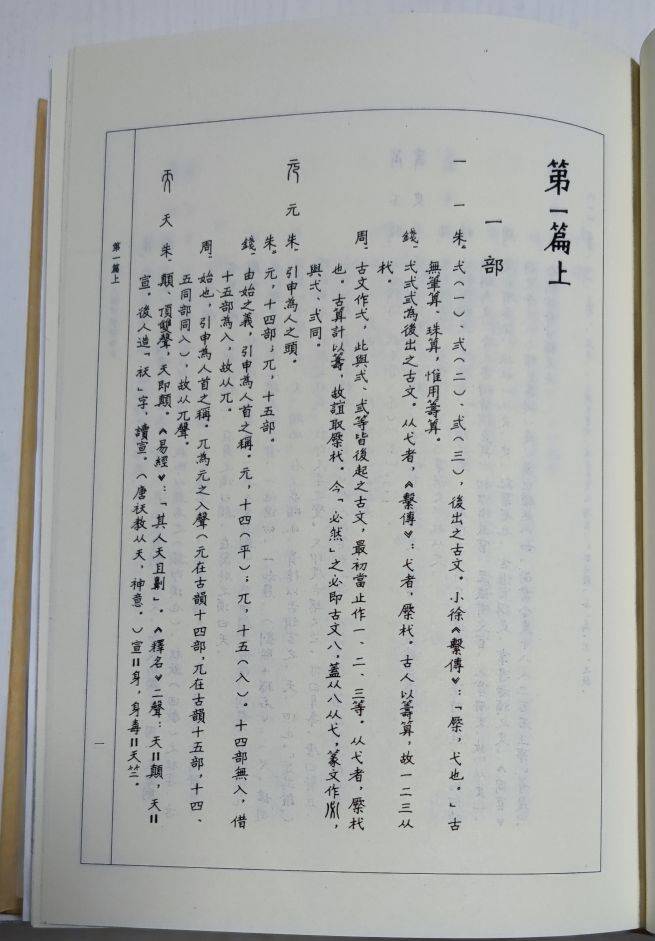 第一篇上
一部
一 一 朱、弌(一)、弍(二)、弎(三),後出之古文。小徐《繫傳》:「橜,弋也。」古
無筆算、珠算,惟用籌算。
錢、弌弍弎為後出之古文。从弋者,《繫傳》:弋者,橜杙。古人以籌算,故一二三从
杙。
周、古文作弌,此與弍、弎等皆後起之古文,最初當止作一、二、三等。从弋者,橜杙
也。古算計以籌,故誼取橜杙。今「必然」之必即古文八,蓋从八从弋,篆文作
與弌、弍同。
元 朱、引申為人之頭。
朱。元,十四部;兀,十五部。
錢、由始之義,引申為人首之稱。元,十四(平);兀,十五(入)。十四部無入,借
十五部為入,故从兀。
周、始也,引申為人首之稱。兀為元之入聲(元在古韻十四部,兀在古韻十五部,十四、
五同部同入),故从兀聲。
天 朱、顛、頂雙聲,天即顛。《易經》:「其人天且劓」。《釋名》二聲:天=顛,天=
宣,後人造「祆」字,讀宣。(唐祆教从天,神意。)宣=身,身毒=天竺。
第一篇上
一